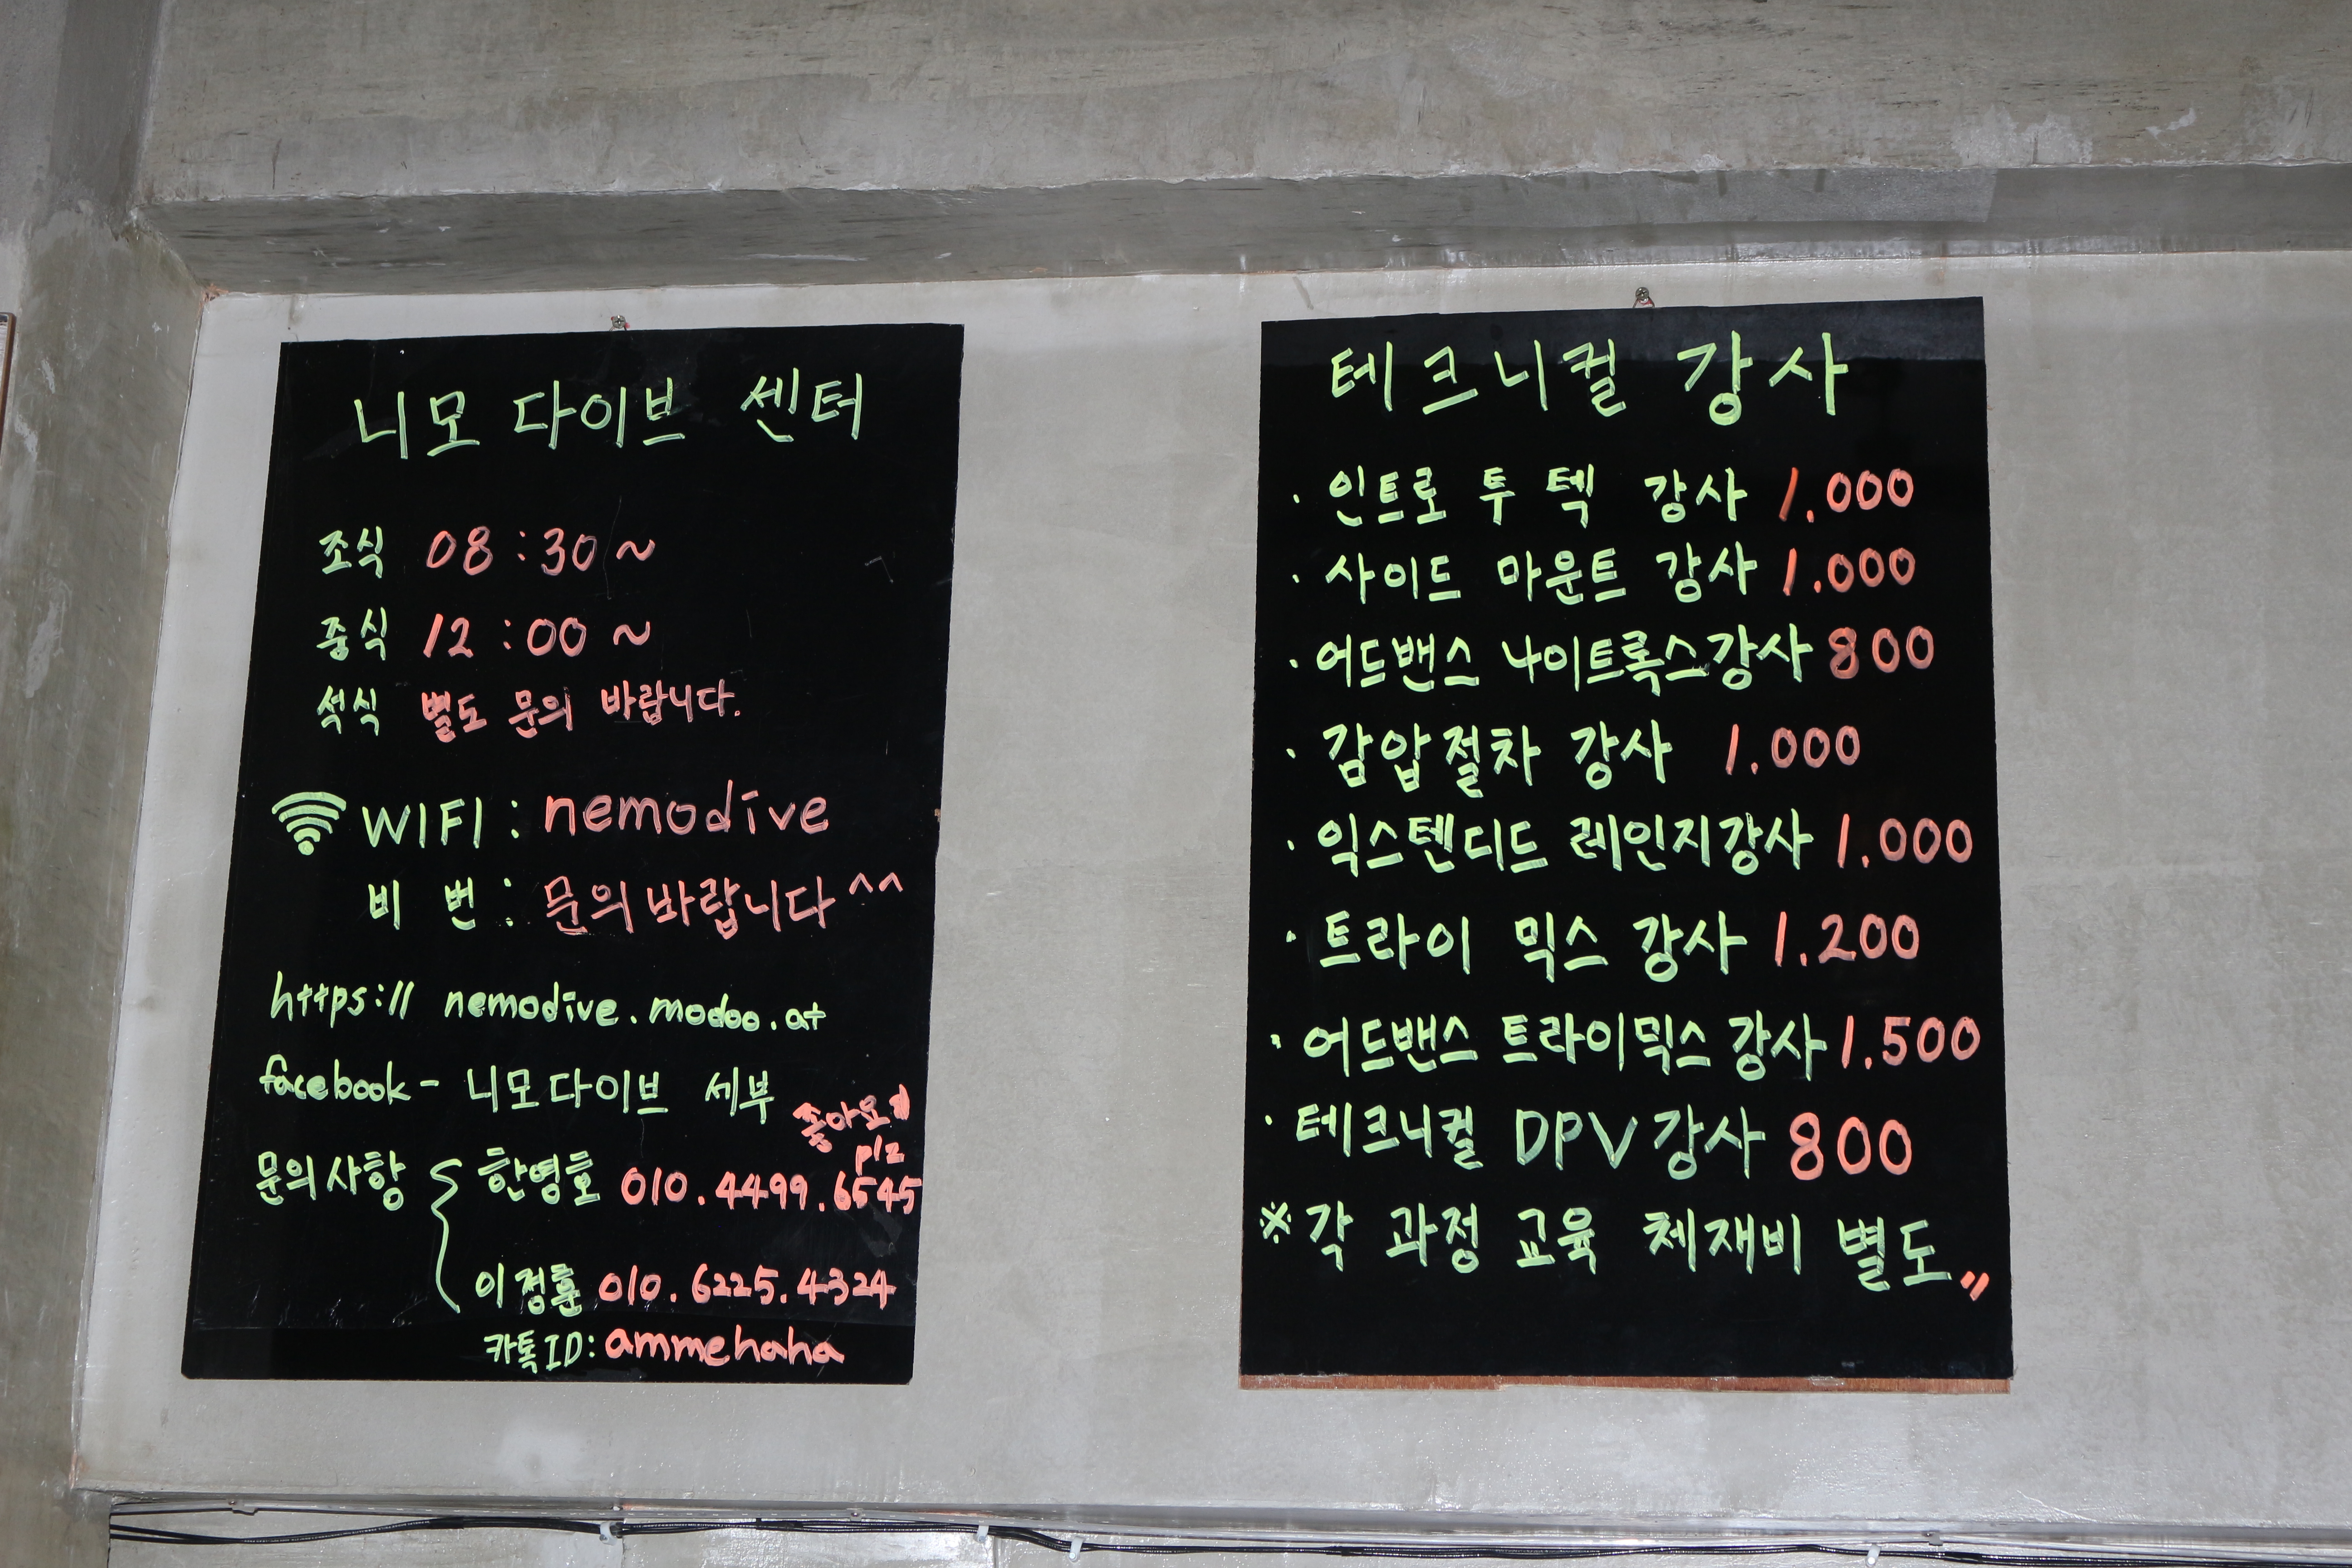 니모 다이브 센터
조식 08:30~
중식 12:00~
석식 별도 문의 바랍니다.
WIFI : nemodive
비 번 : 문의 바랍니다^^
https:// nemodive.modoo.at
facebook - 니모다이브 세부
좋아요
plz
문의사항 { 한영호 010.4499.6545
이정훈 010.6225.4324
카톡ID: ammehaha
테크니컬 강사
· 인트로 투 텍 강사 1.000
· 사이드 마운트 강사 1.000
· 어드밴스 나이트록스강사 800
· 감압절차 강사 1.000
· 익스텐디드 레인지강사 1.000
· 트라이 믹스 강사 1.200
· 어드밴스 트라이믹스 강사 1.500
· 테크니컬 DPV강사 800
※각 과정 교육 체재비 별도〃